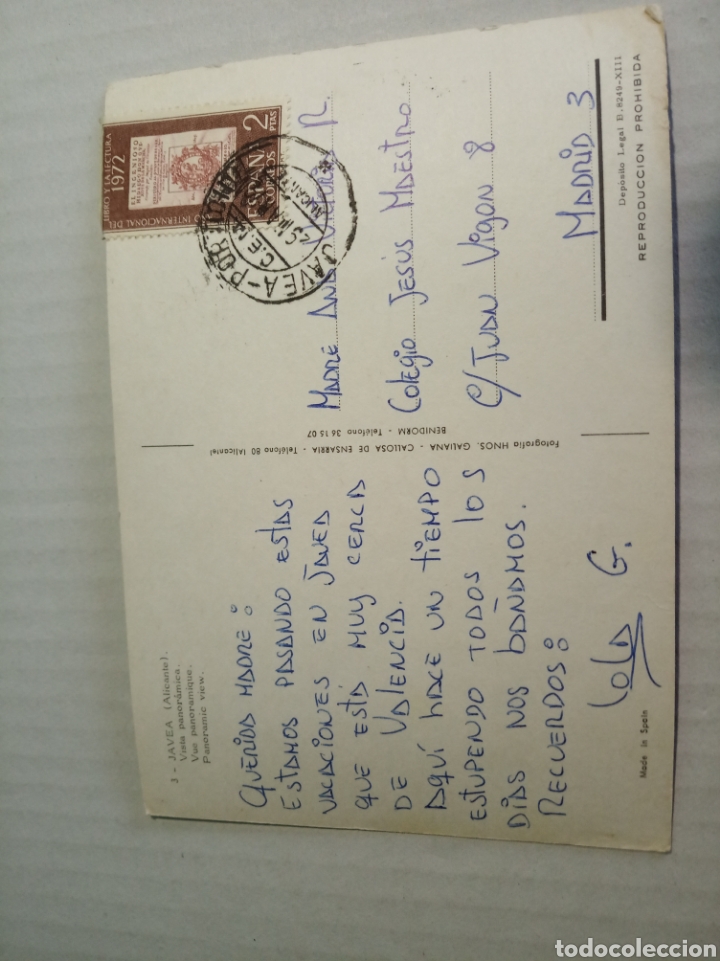 3 - JAVEA (Alicante).
Vista panorámica.
Vue panoramique.
Panoramic view.
QUERIDA MADRE:
ESTAMOS PASANDO ESTAS
VACACIONES EN JAVEA
QUE ESTÁ MUY CERCA
DE VALENCIA.
AQUÍ HACE UN TIEMPO
ESTUPENDO TODOS LOS
DÍAS NOS BAÑAMOS.
RECUERDOS:
Lola G.
Made in Spain
Fotografía HNOS. GALIANA - CALLOSA DE ENSARRIA - Teléfono 80 (Alicante)
BENIDORM - Teléfono 36 15 07
INTERNACIONAL DEL
LIBRO Y LA LECTURA
1972
INGENIOSO
ESPAÑA
CORREOS
2
PTAS
JAVEA-
ALICANTE
MADRE ANA VICTORIA R.
COLEGIO JESÚS MAESTRO.
C/ JUAN VIGON 8
MADRID 3
Depósito Legal B. 8249-XIII
REPRODUCCION PROHIBIDA
todocoleccion